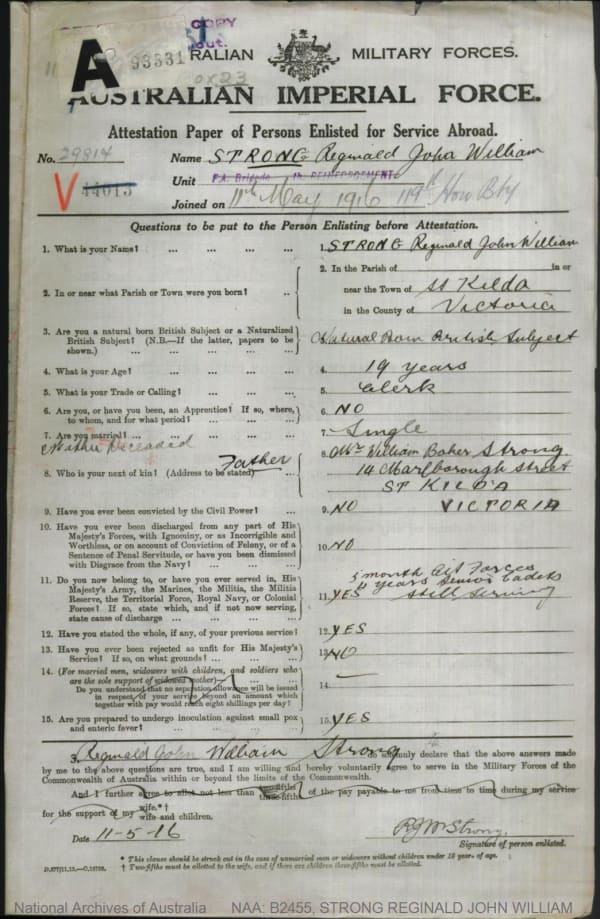 COPY
93331
A
RALIAN MILITARY FORCES.
0x23
AUSTRALIAN IMPERIAL FORCE.
Attestation Paper of Persons Enlisted for Service Abroad.
No. 29814 Name STRONG Reginald John William
V 44013 Unit F.A. Brigade REINFORCEMENT
Joined on 11th May 1916 How Bty
Questions to be put to the Person Enlisting before Attestation.
1. What is your Name? ... ... ... ... 1. STRONG Reginald John William
2. In or near what Parish or Town were you born? ... 2. In the Parish of in or
near the Town of St Kilda
in the County of Victoria
3. Are you a natural born British Subject or a Naturalized
British Subject? (N.B.—If the latter, papers to be
shown.) ... ... ... ... Natural Born British Subject
4. What is your Age? ... ... ... ... 4. 19 years
5. What is your Trade or Calling? ... ... ... 5. Clerk
6. Are you, or have you been, an Apprentice? If so, where,
to whom, and for what period? ... ... ... 6. NO
7. Are you married? ... ... ... ... 7. Single
Mother Deceased
Father
8. Who is your next of kin? (Address to be stated) ... 8. Mr William Baker Strong
14 Marlborough Street
ST KILDA
9. Have you ever been convicted by the Civil Power? ... 9. NO VICTORIA
10. Have you ever been discharged from any part of His
Majesty's Forces, with Ignominy, or as Incorrigible and
Worthless, or on account of Conviction of Felony, or of a
Sentence of Penal Servitude, or have you been dismissed
with Disgrace from the Navy? ... ... ... 10. NO
11. Do you now belong to, or have you ever served in, His
Majesty's Army, the Marines, the Militia, the Militia
Reserve, the Territorial Force, Royal Navy, or Colonial
Forces? If so, state which, and if not now serving,
state cause of discharge ... ... ... 11. YES
month Cit Forces
4 years Senior Cadets
Still Serving
12. Have you stated the whole, if any, of your previous service? 12. YES
13. Have you ever been rejected as unfit for His Majesty's
Service? If so, on what grounds? ... ... ... 13. NO
14. (For married men, widowers with children, and soldiers who
are the sole support of widowed mother)—
Do you understand that no separation allowance will be issued
in respect of your service beyond an amount which
together with pay would reach eight shillings per day? 14. —
15. Are you prepared to undergo inoculation against small pox
and enteric fever? ... ... ... ... 15. YES
I, Reginald John William Strong do solemnly declare that the above answers made
by me to the above questions are true, and I am willing and hereby voluntarily agree to serve in the Military Forces of the
Commonwealth of Australia within or beyond the limits of the Commonwealth.
And I further agree to allot not less than two-fifths three-fifths of the pay payable to me from time to time during my service
for the support of my wife.*† wife and children.
Date 11-5-16 RJW Strong.
Signature of person enlisted.
* This clause should be struck out in the case of unmarried men or widowers without children under 18 years of age.
† Two-fifths must be allotted to the wife, and if there are children three-fifths must be allotted.
National Archives of Australia NAA: B2455, STRONG REGINALD JOHN WILLIAM